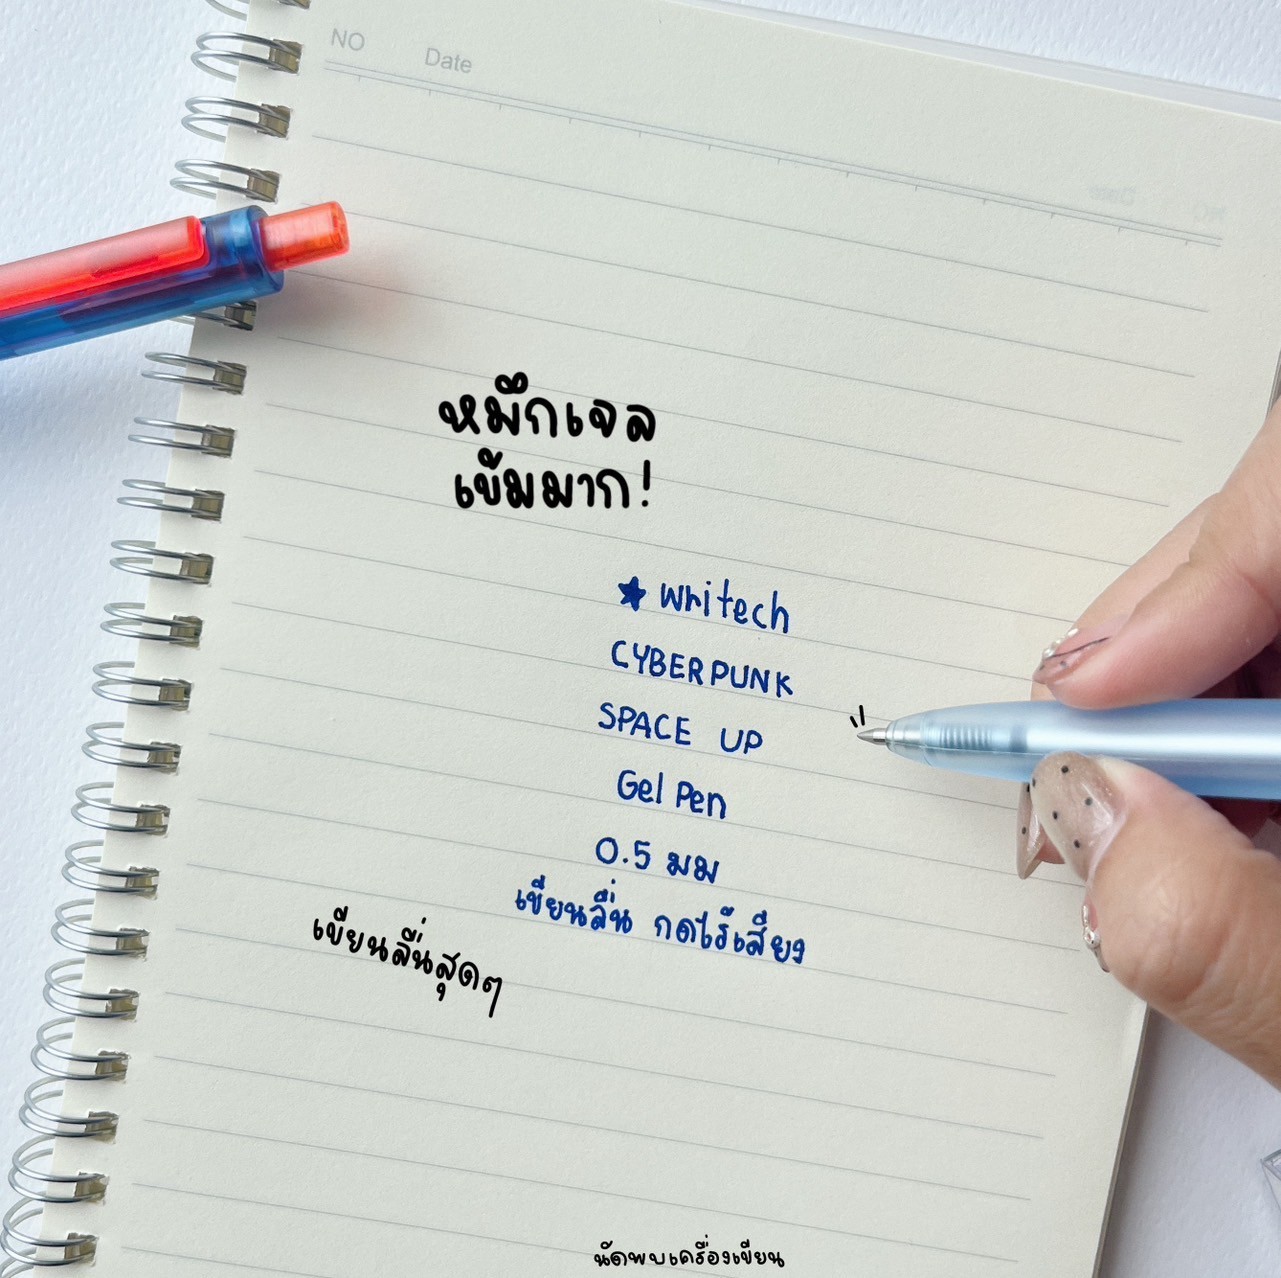 NO Date
หมึกเจล
เข้มมาก!
★ Writech
CYBERPUNK
SPACE UP
Gel Pen
0.5 มม
เขียนลื่น กดไร้เสียง
เขียนลื่นสุดๆ
นัดพบเครื่องเขียน